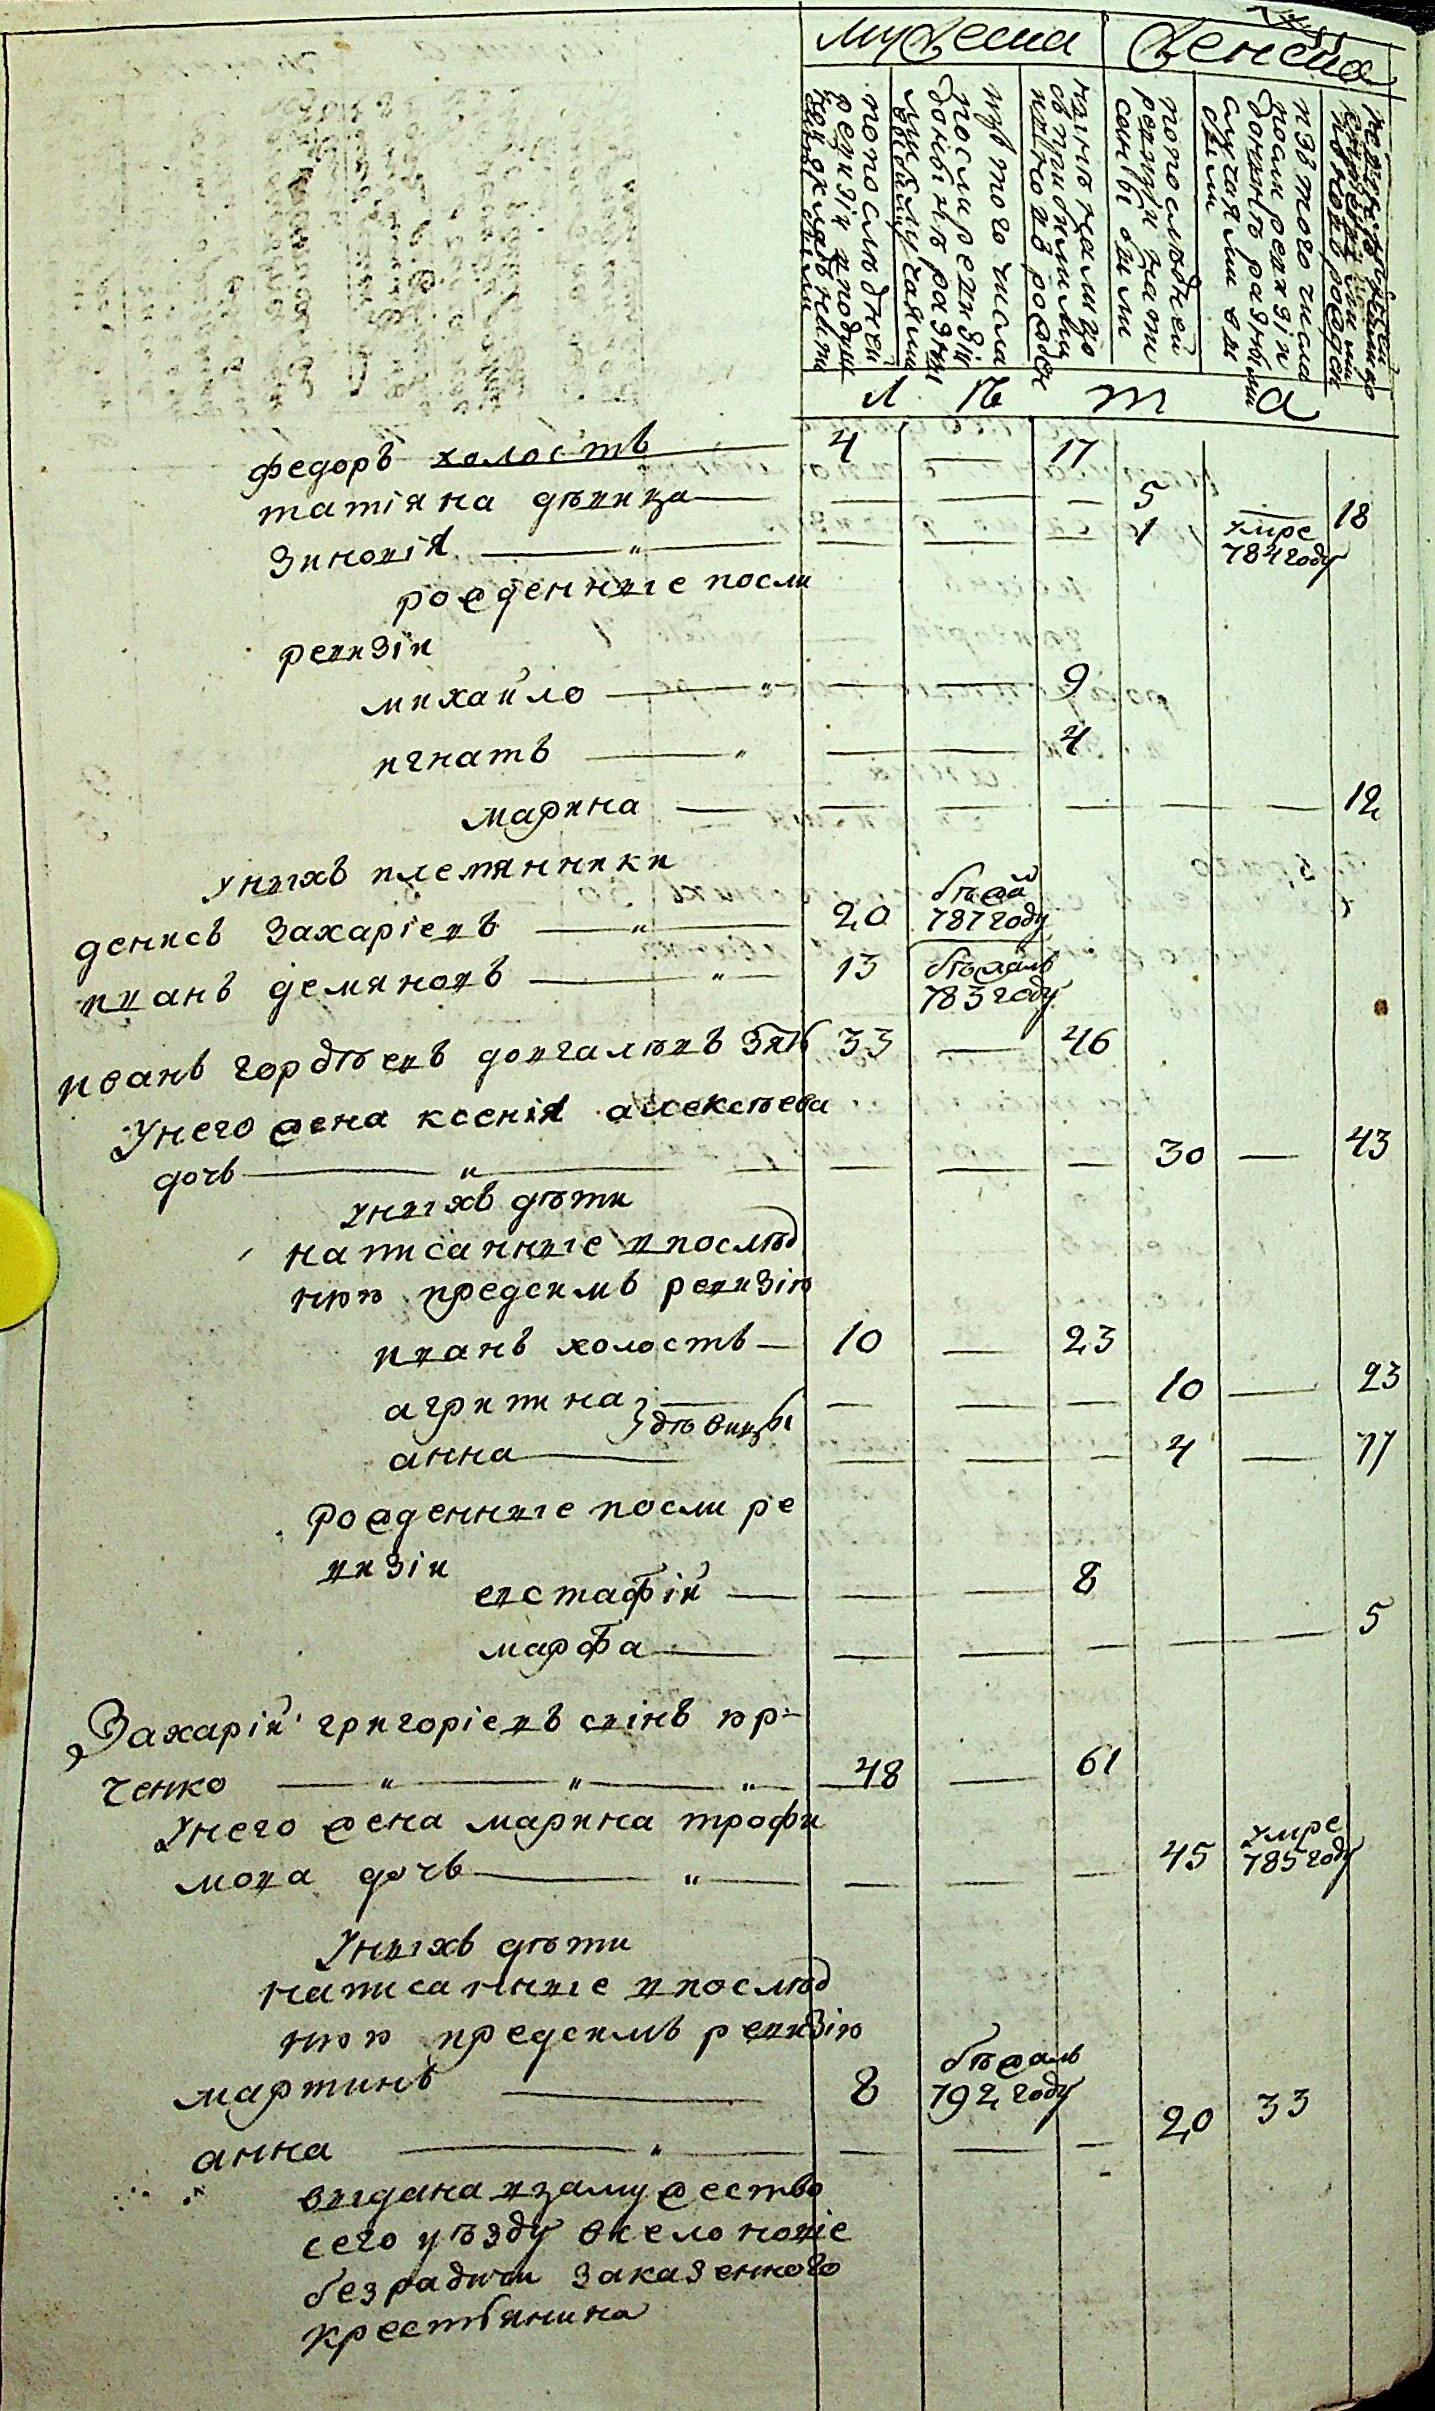 мужеска женска
по последней ревизіи
изъ того числа после ревизіи разными случаями
по последней ревизіи
изъ того числа после ревизіи разными случаями
л ѣ т а
федоръ холостъ 4 — 17
татіяна дѣвица — — — 5 — 18
Зиновія — — — 1 умре 784 году
рожденные посли
ревизіи
михайло — — 9
игнатъ — — 4
марина — — — — — 12
у ныхъ племянники
денисъ Захаріевъ 20 бѣжа 787 году
иванъ демяновъ 13 бѣжалъ 783 году
иванъ гордѣевъ довгалѣвъ зять 33 — 46
У него жена ксенія алексѣева
дочь — — — 30 — 43
у ныхъ дѣти
написанные в послѣд
нюю предсимъ ревизію
иванъ холостъ 10 — 23
агрипина — — — 10 — 23
дѣвицы
анна — — — 4 — 17
рожденные посли ре
визіи
евстафій — — 8
марфа — — — — — 5
Захарій григоріевъ синъ юр-
ченко 48 — 61
У него жена марина трофи
мова дочь — — — 45 умре 785 году
У ныхъ дѣти
написанные в послѣд
нюю предсимъ ревизію
мартинъ 8 бѣжалъ 792 году
анна — — — 20 33
выдана взамужество
сего уѣзду в село
за казенного
крестьянина